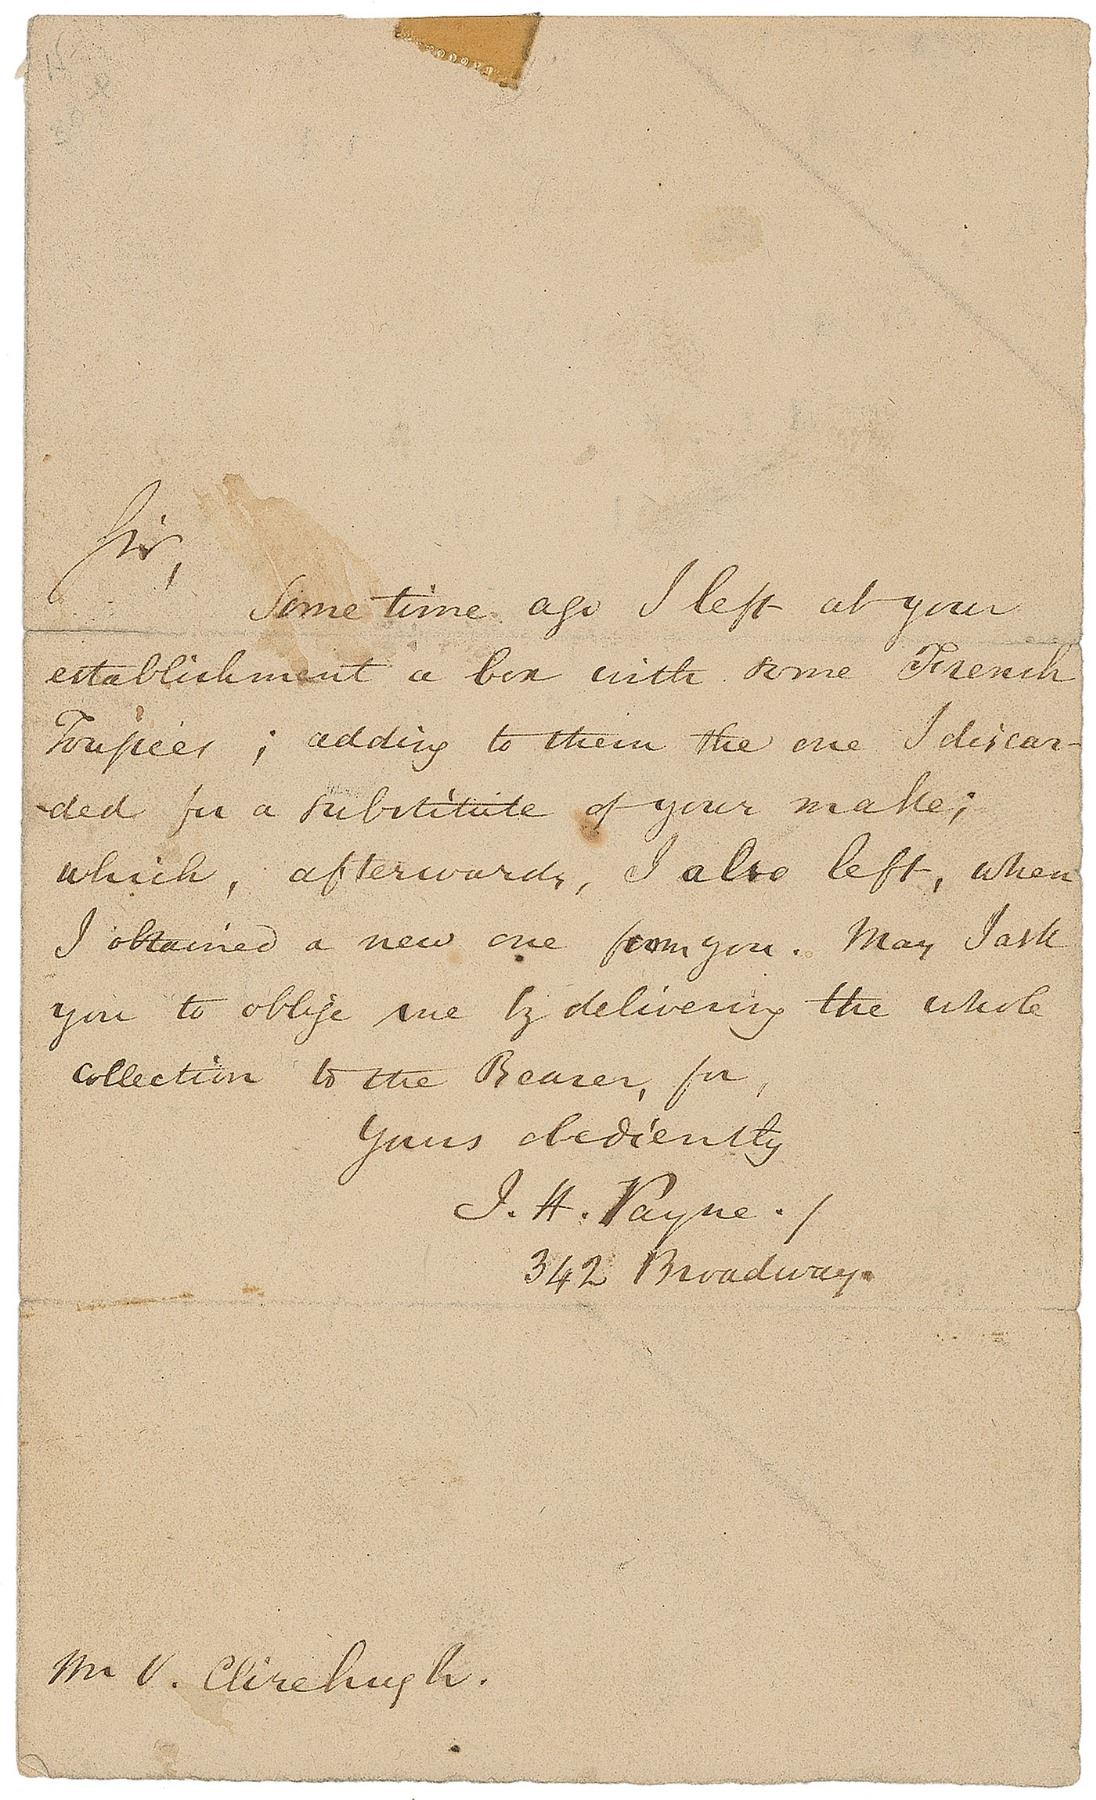 Sir,
Some time ago I left at your
establishment a box with some French
Toupees ; adding to them the one I discar-
-ded for a substitute of your make;
which, afterwards, I also left, when
I obtained a new one from you. May I ask
you to oblige me by delivering the whole
collection to the Bearer, for,
Yours obediently
J. H. Payne./
342 Broadway.
Mr V. Clirehugh.